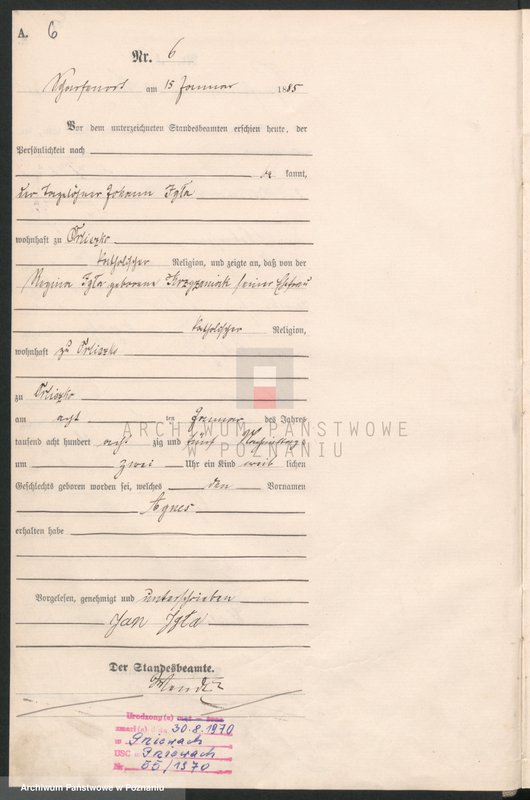 A. 6
Nr. 6
Scharfenort am 15 Januar 1885
Vor dem unterzeichneten Standesbeamten erschien heute, der
Persönlichkeit nach
be kannt,
der Tagelöhner Johann Igła
wohnhaft zu Orliczko
katholischer Religion, und zeigte an, daß von der
Regina Igła geborene Krzyzaniak seiner Ehefrau
katholischer Religion,
wohnhaft zu Orliczko
zu Orliczko
am acht ten Januar des Jahres
tausend acht hundert acht zig und fünf Nachmittags
um zwei Uhr ein Kind weib lichen
Geschlechts geboren worden sei, welches den Vornamen
Agnes
erhalten habe
Vorgelesen, genehmigt und unterschrieben
Jan Igła
Der Standesbeamte.
Urodzony(e)
zmarł(a) dnia 30.8.1970
w Pniewach
USC w Pniewach
Nr. 55/1970
ARCHIWUM PAŃSTWOWE
W POZNANIU
Archiwum Państwowe w Poznaniu